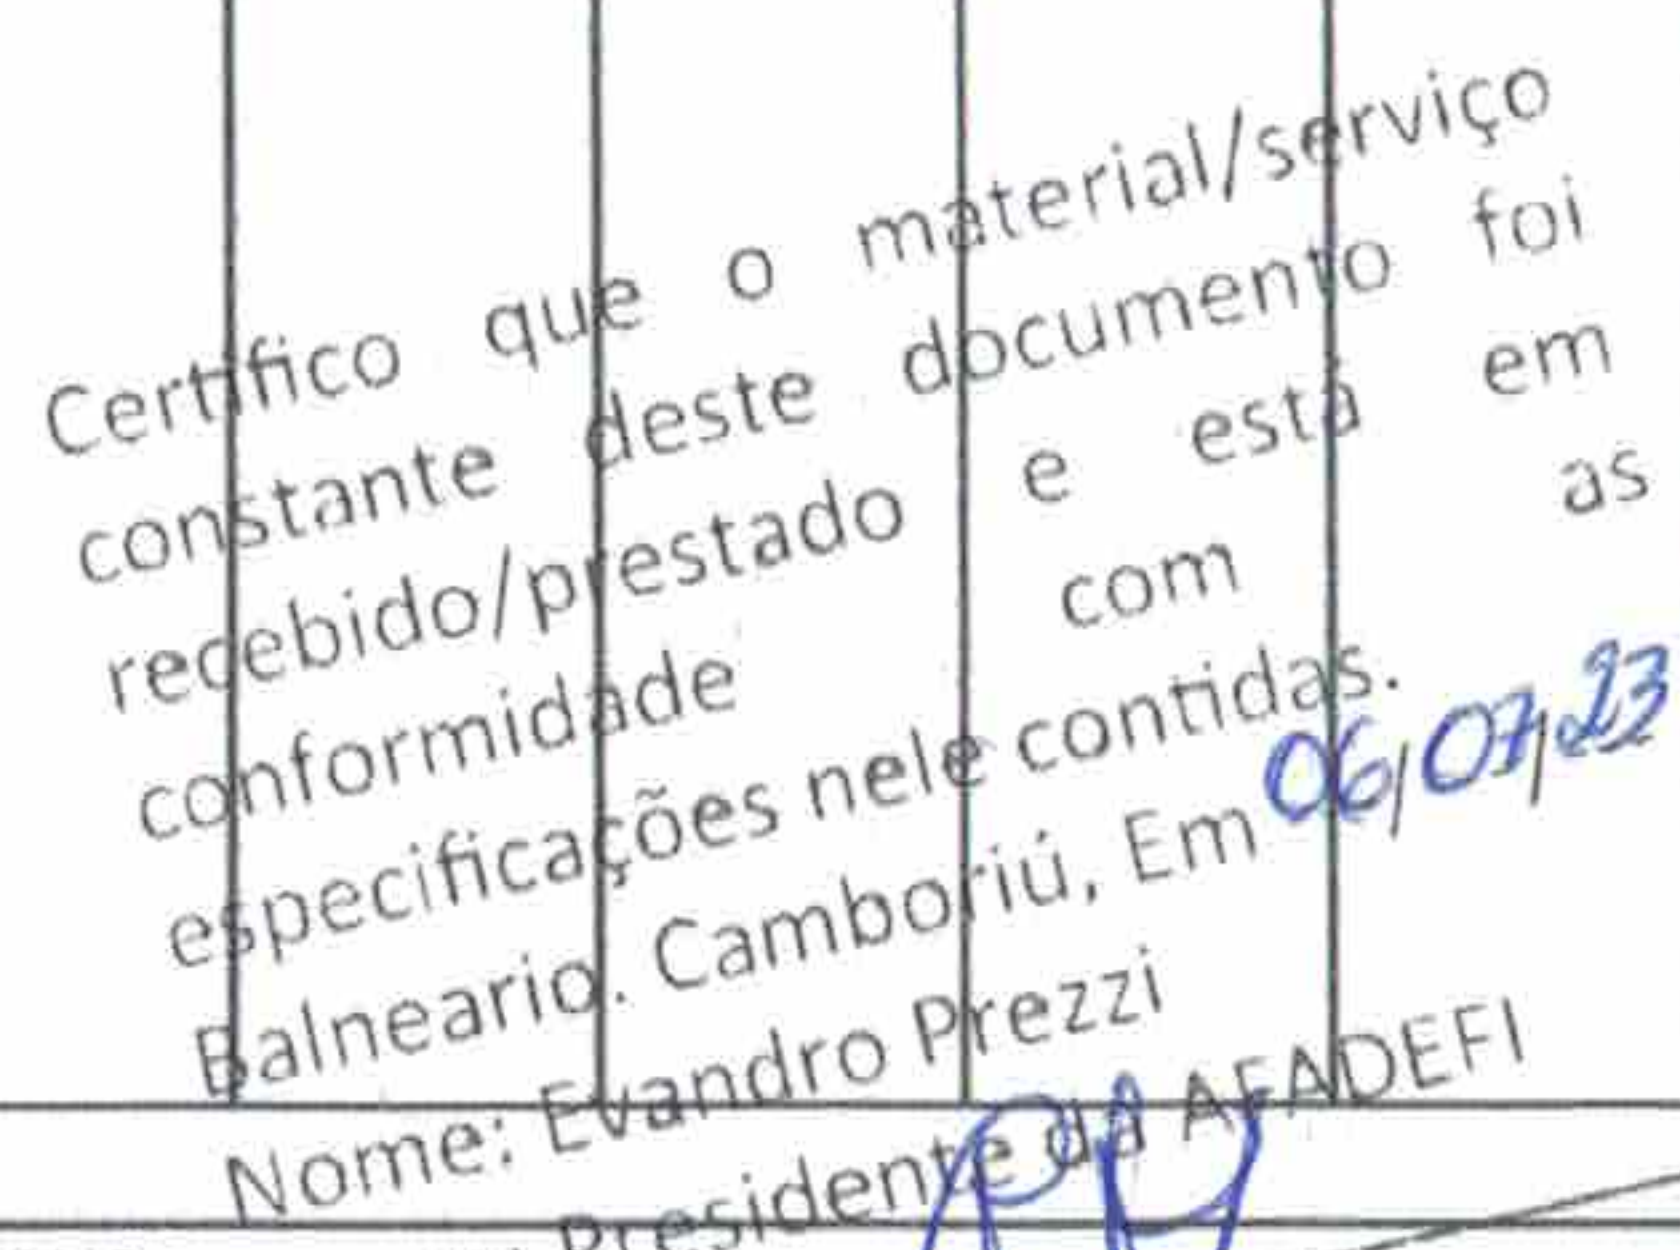 Certifico que o material/serviço
constante deste documento foi
recebido/prestado e está em
conformidade com as
especificações nele contidas.
Balneario. Camboriú, Em 06/07/23
Nome: Evandro Prezzi
Presidente da AFADEFI